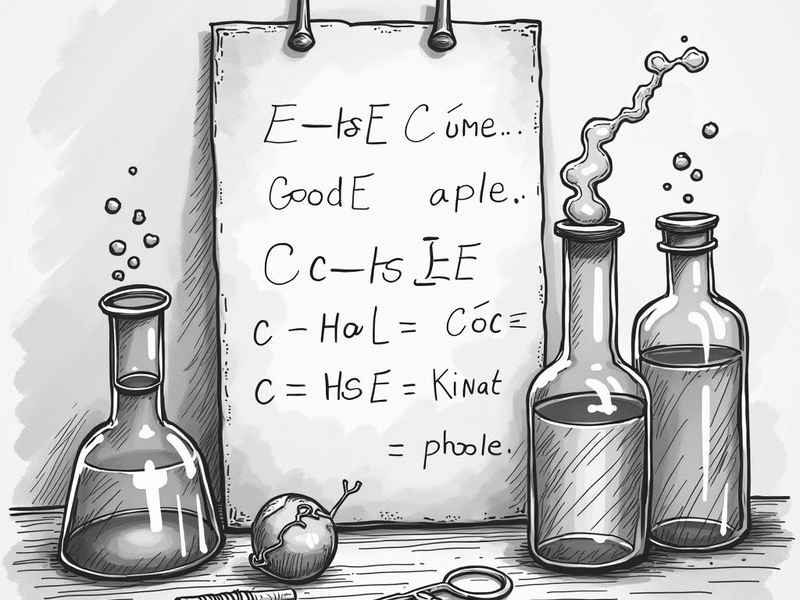 E–HsE Cúme...
GoodE aple..
Cc–HsIEE
c – HaL = Cóc=
c = HSE = KiNat
= phole.